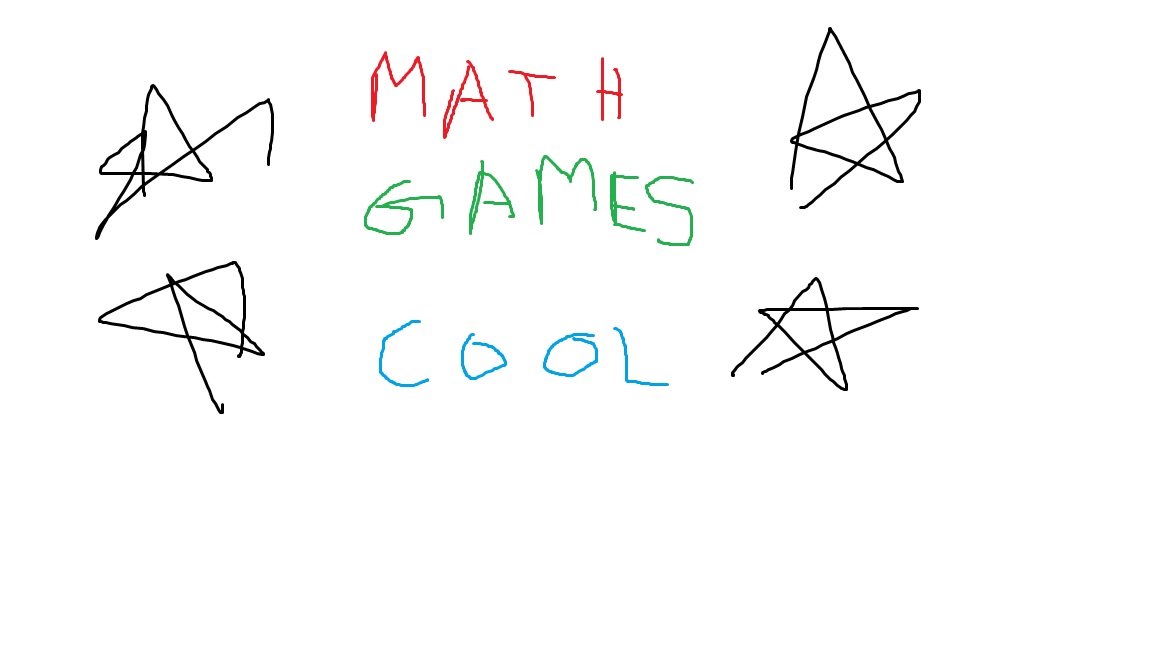 MATH
GAMES
COOL